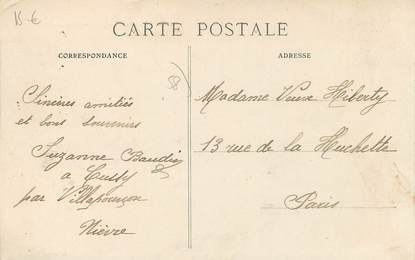 15 €
CARTE POSTALE
CORRESPONDANCE
ADRESSE
58
Sincères amitiés
et bons souvenirs
Suzanne
à Cussy
par Villapourçon
Nièvre
Madame Veuve Hiberty
13 rue de la Huchette
Paris